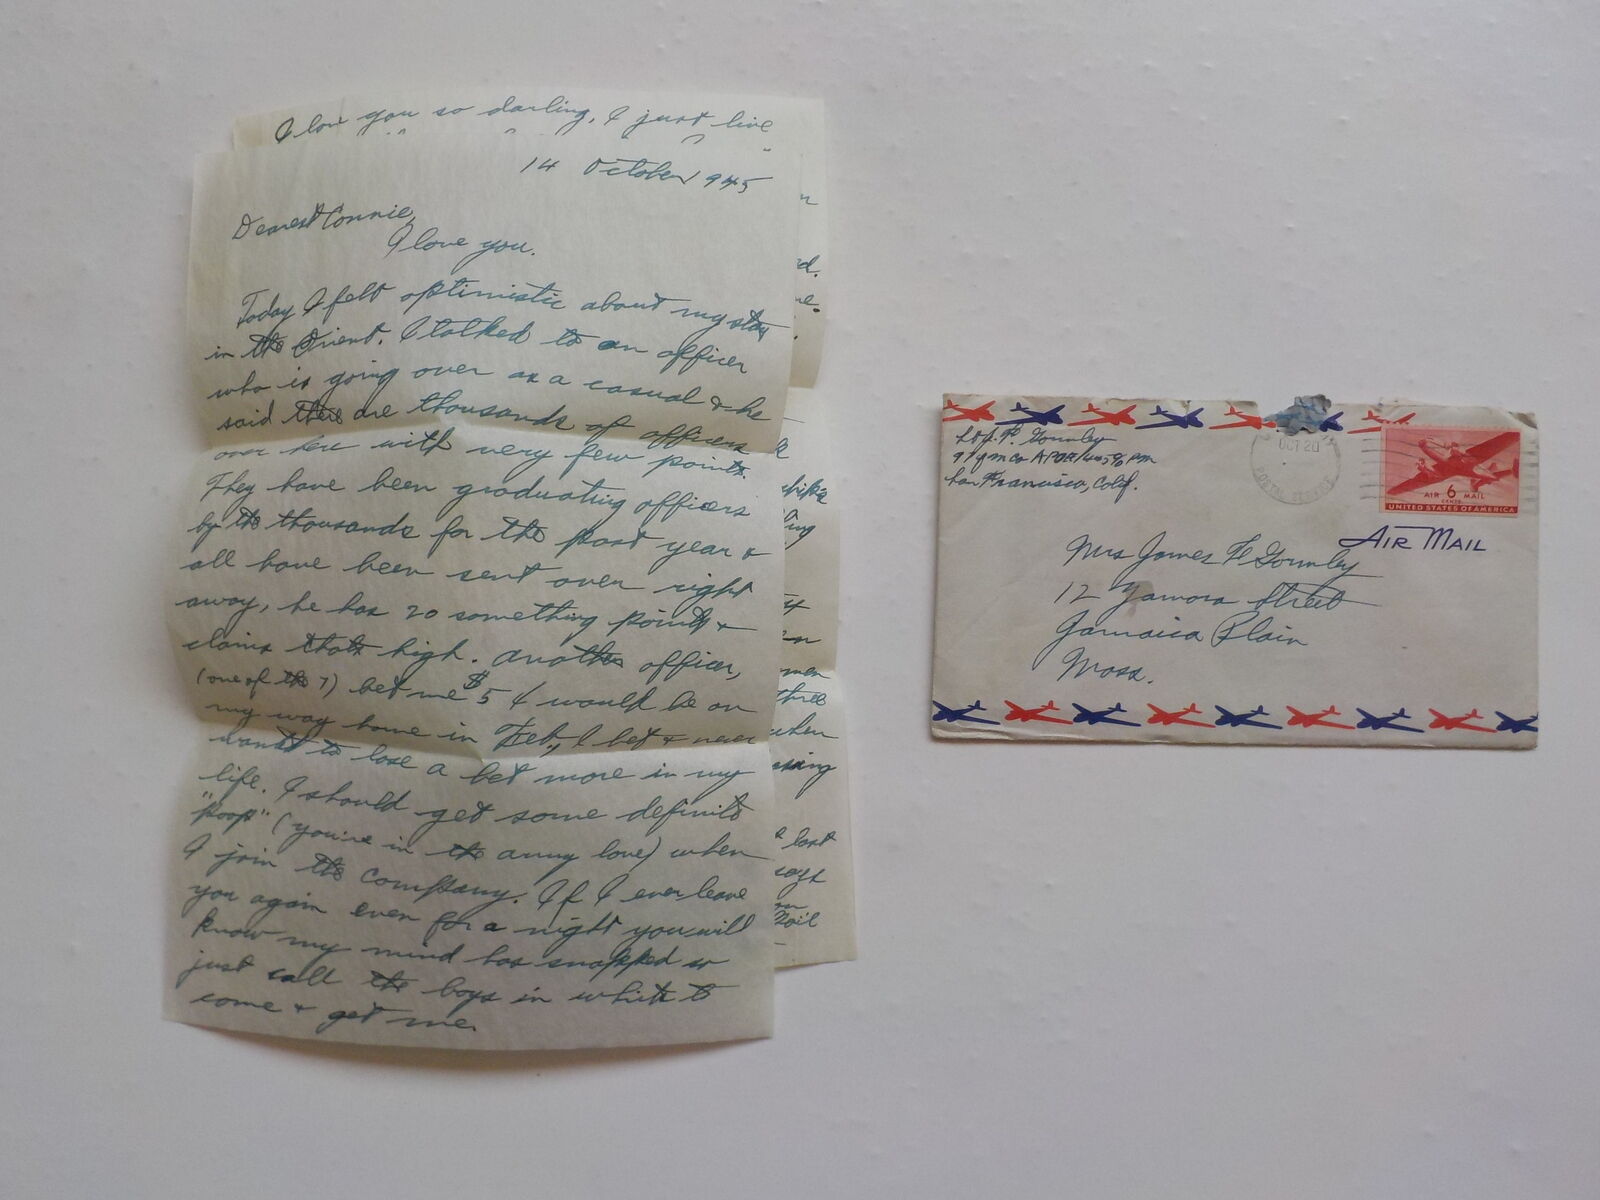 I love you so darling, I just live
14 October 1945
Dearest Connie,
I love you.
Today I felt optimistic about my stay
in the Orient. I talked to an officer
who is going over as a casual & he
said there are thousands of officers
over here with very few points.
They have been graduating officers
by the thousands for the past year &
all have been sent over right
away, he has 20 something points &
claims thats high. Another officer,
(one of the 7) bet me $5 I would be on
my way home in Feb., I bet & never
want to lose a bet more in my
life. I should get some definite
"poop" (you're in the army love) when
I join the company. If I ever leave
you again even for a night you will
know my mind has snapped so
just call the boys in white to
come & get me.
rd.
ships
ing
men
three
when
last
says
Lt J. F. Gormley
San Francisco, Calif.
OCT 20
POSTAL SERVICE
AIR 6 MAIL
CENTS
UNITED STATES OF AMERICA
AIR MAIL
Mrs James F Gormley
12 Zamora Street
Jamaica Plain
Mass.